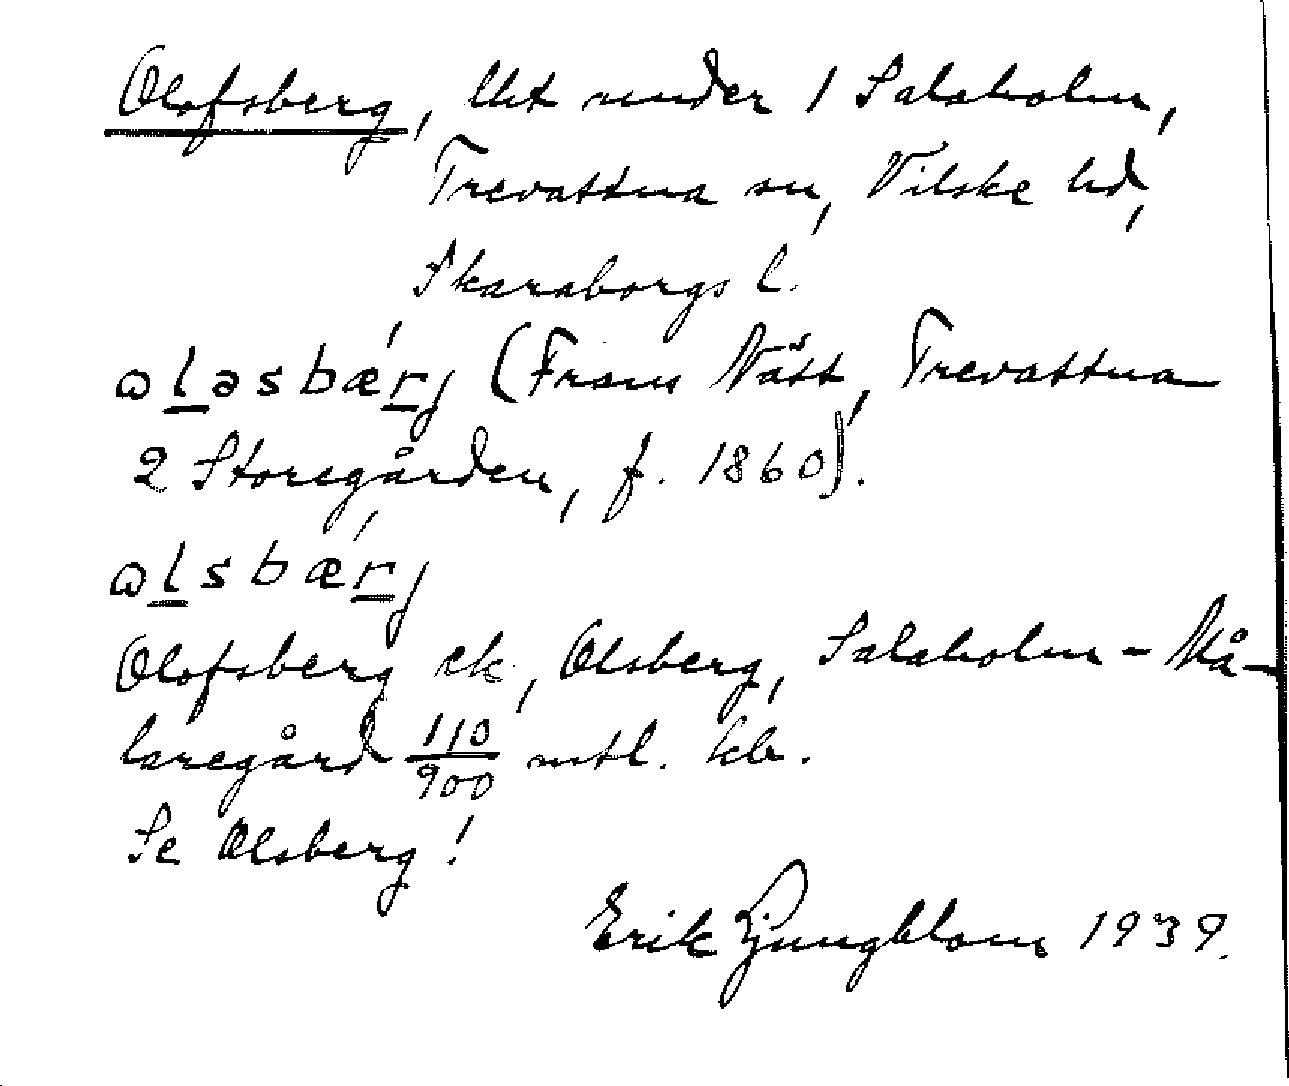 Olofsberg, lht under 1 Salaholm,
Trevattna sn, Vilske hd,
Skaraborgs l.
ɷləsbærj (Frans Nätt, Trevattna
2 Storegården, f. 1860).
ɷlsbærj
Olofsberg ek, Olsberg, Salaholm - Må-
laregård 110/900 mtl.
Se Olsberg!
Erik Ljungblom 1939.